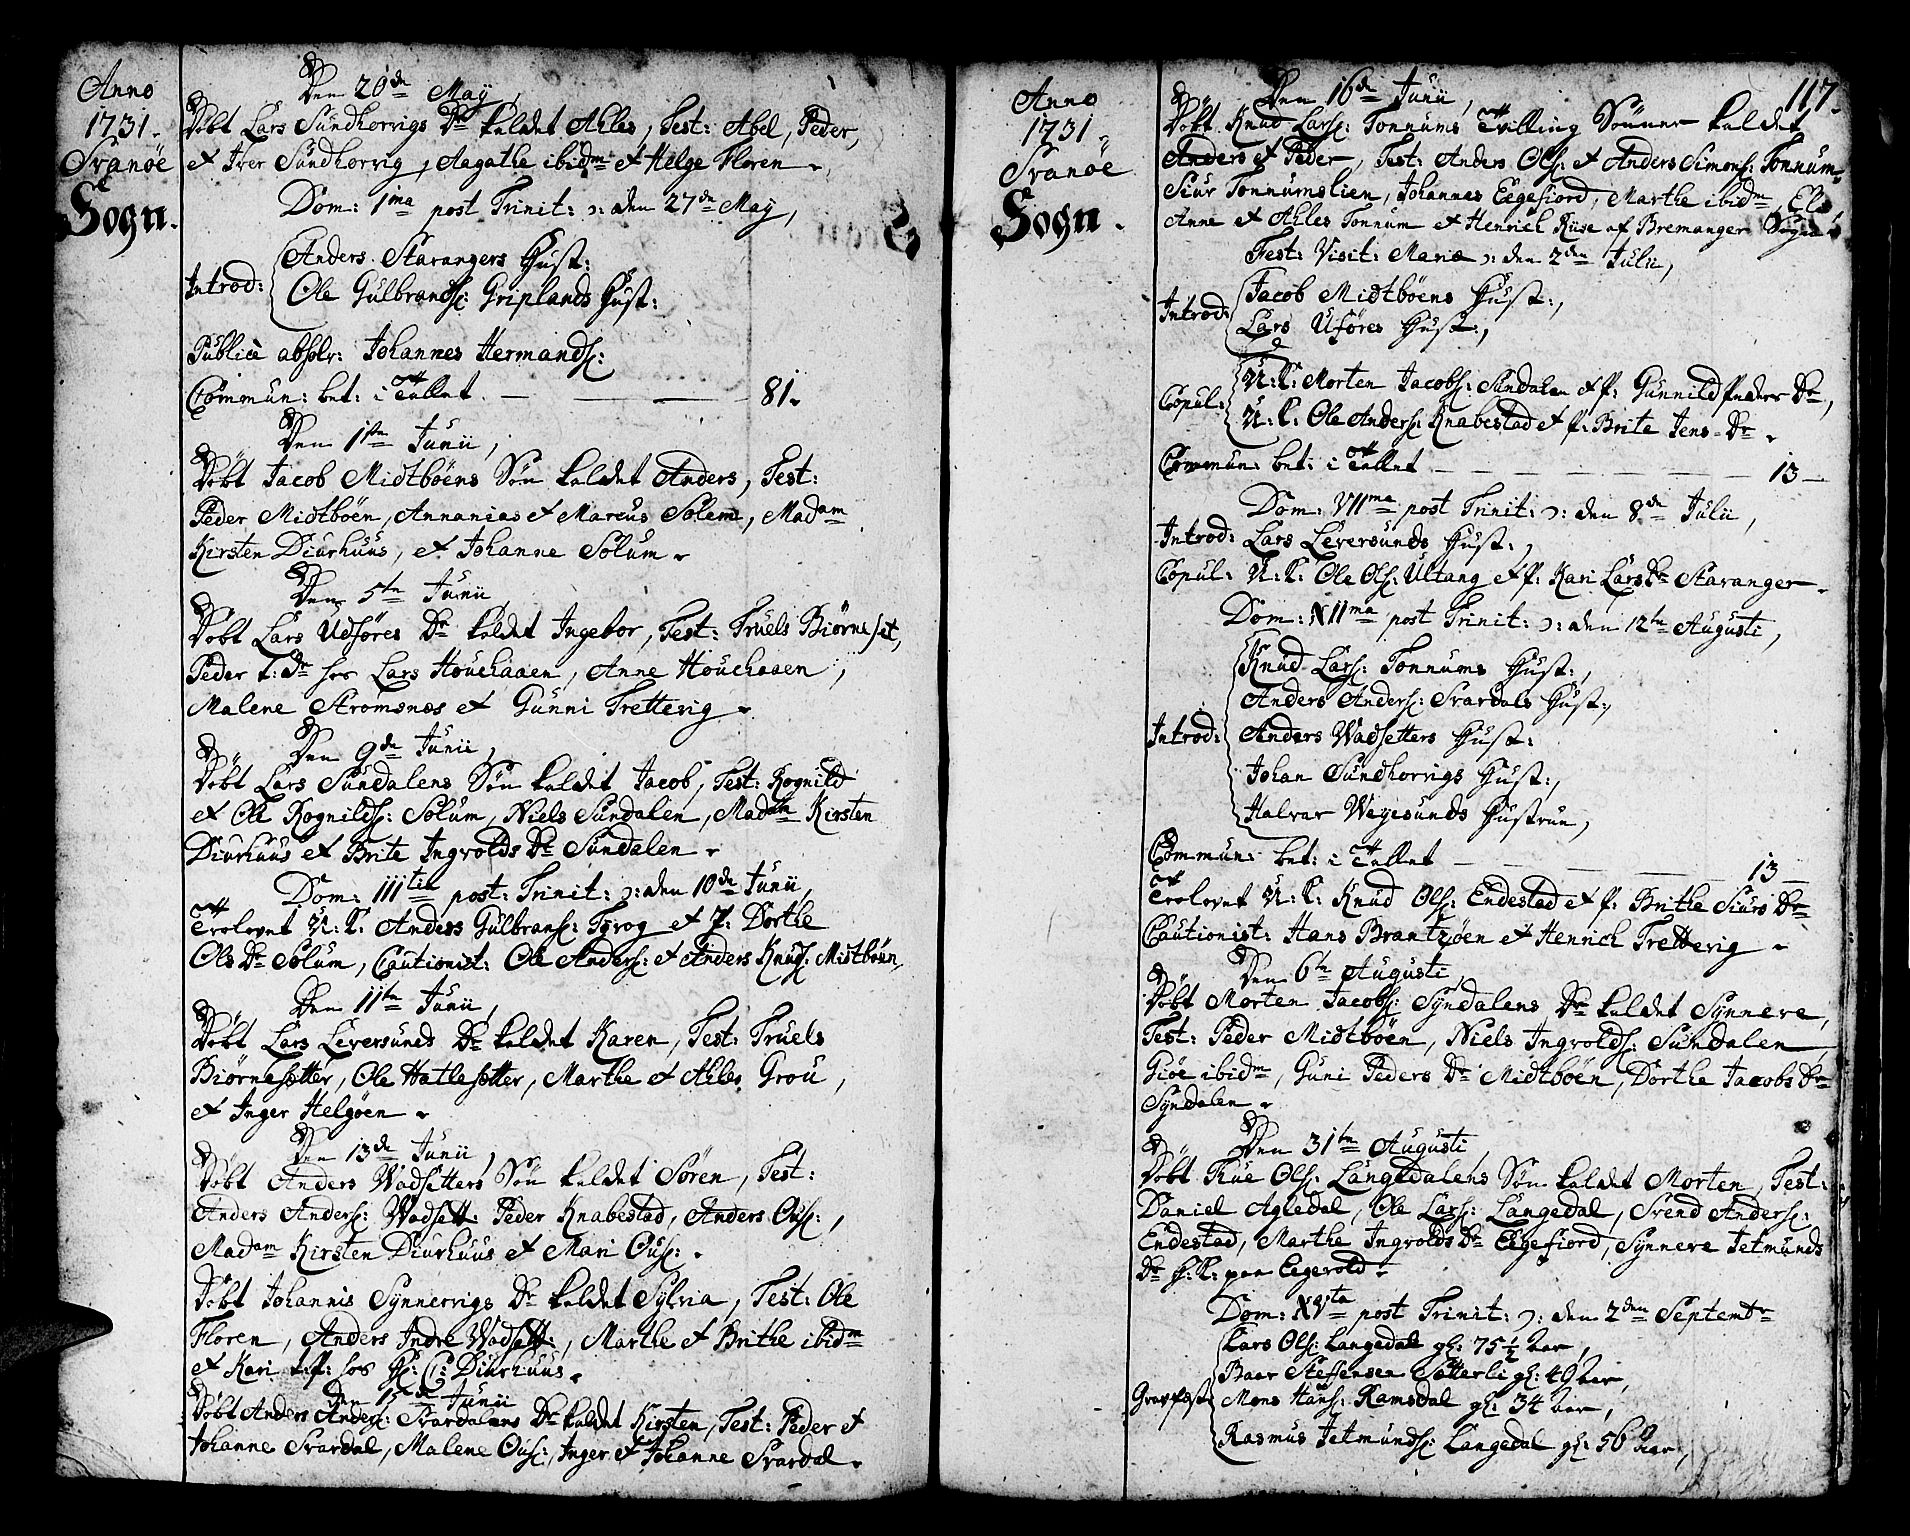 Anno
1731.
Svanøe
Sogn.
Den 20de May,
Døbt Lars Sündhorvigs Dr kaldet Ahles, Test: Abel, Peder,
et Iver Sündhorvig, Aagathe ibidm et Helge Floren.
Dom: 1ma post Trinit: ɔ: den 27de May,
Introd:
Anders Starangers Hust:
Ole Gülbrandß: Griplands Hust:
Publicè absolv: Johannes Hermandß:
Commun: bet: i Tallet — — — 81.
Den 1ste Junii,
Døbt Jacob Midtbøens Søn kaldet Anders, Test:
Peder Midtbøen, Annanias et Marcus Solem, Madam
Kirsten Diurhuus, et Johanne Solum.
Den 5te Junii
Døbt Lars Udføres Dr kaldet Ingebor, Test: Truels Biørneset,
Peder t: Dr hos Lars Houehaaen, Anne Houehaaen,
Malene Stromsnes et Gunni Trettevig.
Den 9de Junii,
Døbt Lars Sündalens Søn kaldet Jacob, Test: Rognild
et Ole Rognildß: Solum, Niels Sundalen, Madam Kirsten
Diurhuus et Brite Ingvolds Dr Sundalen.
Dom: IIItia post: Trinit: ɔ: den 10de Junii,
Trolovet U: K: Anders Gülbranß: Tyvog et P: Dorthe
Ols Dr Solum, Cautionist: Ole Anderß: et Anders Knudß: Midtbøen,
Den 11te Junii,
Døbt Lars Leversunds Dr kaldet Karen, Test: Truels
Biørnesetter, Ole Hatlesetter, Marthe et Ahles Grou,
et Inger Helgøen.
Den 13de Junii,
Døbt Anders Vadsetters Søn kaldet Søren, Test:
Anders Anderß: Wadsett: Peder Knabestad, Anders Olß:,
Madam Kirsten Diurhuus et Mari Olß:.
Døbt Johannis Synnervigs Dr kaldet Sylvia, Test: Ole
Floren, Anders Indre Wadsett:, Marthe et Brithe ibidm
et Kari t: p: hos Hr: C: Diurhuus.
Den 15de Junii
Døbt Anders Anderß: Svardalens Dr kaldet Kirsten, Test: Peder et
Johanne Svardal, Malene Olß:, Inger et Johanne Svardal.
117.
Anno
1731.
Svanøe
Sogn.
Den 16de Junii,
Døbt Knud Larß: Tonnums Tvilling Sønner kaldet
Anders et Peder, Test: Anders Olß: et Anders Simonß: Tonnum,
Siur Tonnumslien, Johannes Eegefiord, Marthe ibidm, Els
Anne et Ahles Tonnum et Henrich Riise af Bremanger Sogn.
Fest: Visit: Mariæ ɔ: den 2den Julii,
Introd:
Jacob Midtbøens Hust:,
Lars Uføres Hust:,
Copul:
U: K: Morten Jacobß: Sundalen et P: Gunnild Peders Dr,
U: K: Ole Anderß: Knabestad et P: Brite Jens Dr.
Commun: bet: i Tallet — — — 13 —
Dom: VIIma post Trinit: ɔ: den 8de Julii,
Introd: Lars Leversunds Hust:,
Copul: U: K: Ole Olß: Ultang et P: Kari Lars Dr Staranger.
Dom: XIIma post Trinit: ɔ: den 12te Augusti,
Introd:
Knud Larß: Tonnums Hust:,
Anders Anderß: Svardals Hust:,
Anders Wadsetters Hust:
Johan Sundhorvigs Hust:,
Halvar Weyesunds Hustrue,
Commun: bet: i Tallet — — — 13 —
Trolovet U: K: Knud Olß: Endestad et P: Brithe Siurs Dr
Cautionist: Hans Brantzøen et Henrich Trettevig.
Den 6te Augusti,
Døbt Morten Jacobß: Syndalens Dr kaldet Synneve,
Test: Peder Midtbøen, Niels Ingvoldß: Sundalen,
Giøe ibidm, Guni Peders Dr Midtbøen, Dorthe Jacobs Dr
Syndalen.
Den 31te Augusti,
Døbt True Olß: Langedalens Søn kaldet Morten, Test:
Daniel Agledal, Ole Larß: Langedal, Svend Anderß:
Endestad, Marthe Ingvolds Dr Eegefiord, Synneve Jetmunds
Dr H: K: paa Eegevold.
Dom: XVta post Trinit: ɔ: den 2den Septembr
Gravfæst:
Lars Olß: Langedal gl: 75½ aar,
Baar Steffensen Sætterli gl: 40 aar,
Mons Hanß: Ramsdal gl: 34 aar,
Rasmus Jetmundß: Langedal gl: 56 aar,